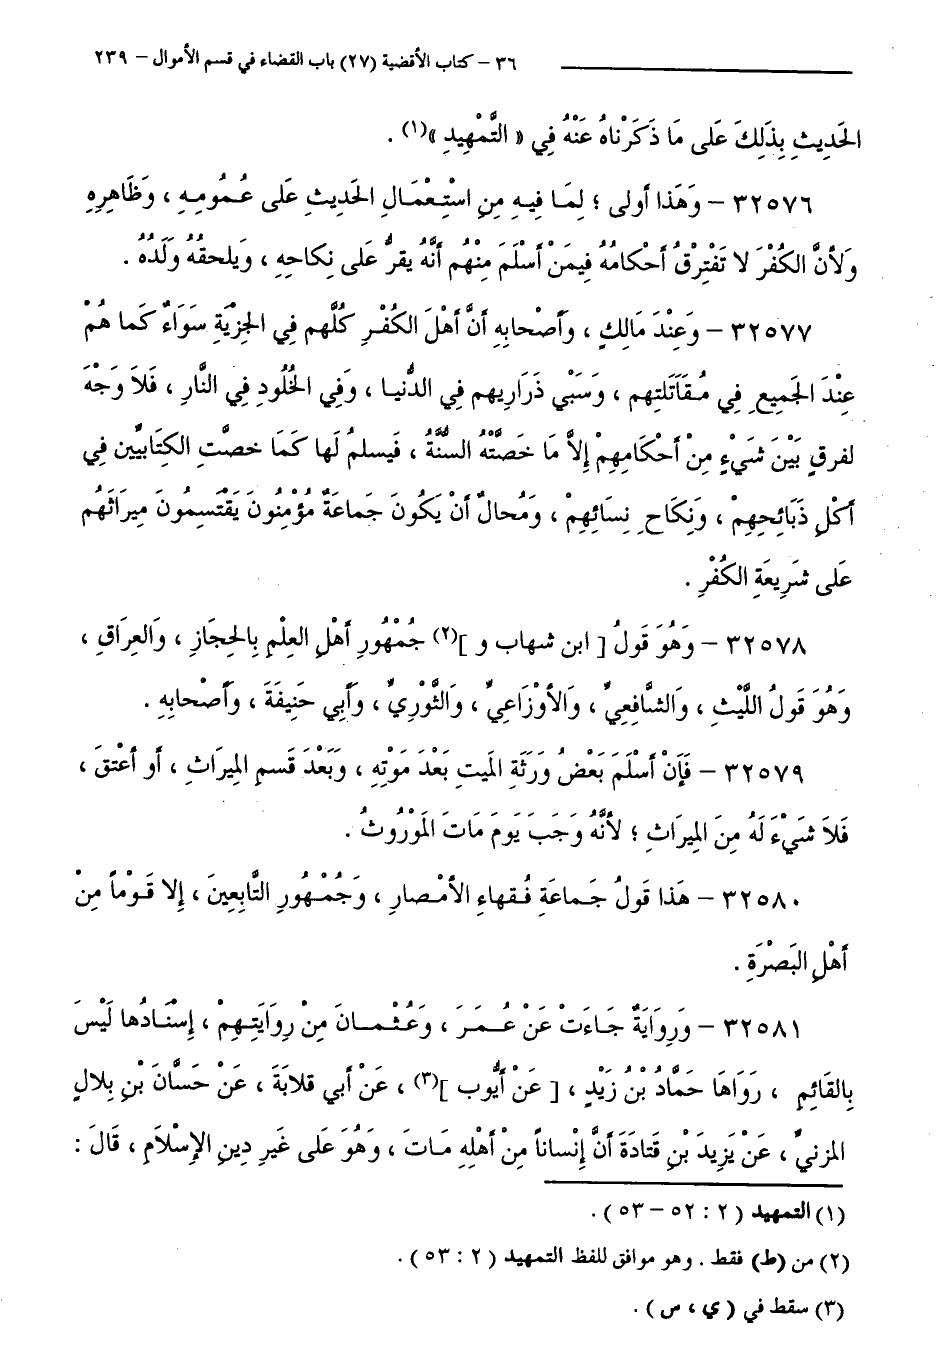 ٣٦ – كتاب الأقضية (٢٧) باب القضاء في قسم الأموال – ٢٣٩
الحَدِيثِ بِذَلِكَ عَلَى مَا ذَكَرْنَاهُ عَنْهُ فِي « التَّمْهِيدِ »(١) .
٣٢٥٧٦ – وَهَذا أولى ؛ لِمَا فِيهِ مِنِ اسْتِعْمَالِ الحَدِيثِ عَلى عُمُومِهِ ، وَظَاهِرِهِ
وَلأنَّ الكُفْرَ لا تَفْتَرِقُ أحْكامُهُ فِيمَنْ أسْلَمَ مِنْهُم أنَّهُ يقرُّ عَلى نِكاحِهِ ، وَيَلحقُهُ وَلَدُهُ .
٣٢٥٧٧ – وَعِنْدَ مَالِكٍ ، وَأصْحابِهِ أنَّ أهْلَ الكُفْرِ كُلَّهم فِي الجِزْيَةِ سَوَاءٌ كَما هُمْ
عِنْدَ الجَمِيعِ فِي مُقَاتَلَتِهم ، وَسَبْيِ ذَرَارِيهم فِي الدُّنيا ، وَفِي الخُلُودِ فِي النَّارِ ، فَلاَ وَجْهَ
لفرقٍ بَيْنَ شَيْءٍ مِنْ أحْكامِهِمْ إلاَّ مَا خَصَّتْهُ السُّنَّةُ ، فَيسلمُ لَها كَمَا خصَّتِ الكِتَابِيِّينَ فِي
أكْلِ ذَبَائِحِهِمْ ، وَنِكَاحِ نِسَائِهِمْ ، وَمُحالٌ أنْ يَكُونَ جَماعَةٌ مُؤْمِنُونَ يَقْتَسِمُونَ مِيرَاثَهُم
عَلى شَرِيعَةِ الكُفْرِ .
٣٢٥٧٨ – وَهُوَ قَولُ [ ابن شهاب و ](٢) جُمْهُورِ أهْلِ العِلْمِ بِالحِجَازِ ، وَالعِرَاقِ ،
وَهُوَ قَولُ اللَّيْثِ ، وَالشَّافِعِيِّ ، وَالأوْزَاعِيِّ ، وَالثَّوْرِيِّ ، وَأبِي حَنِيفَةَ ، وَأصْحابِهِ .
٣٢٥٧٩ – فَإنْ أسْلَمَ بَعْضُ وَرَثَةِ المَيتِ بَعْدَ مَوْتِهِ ، وَبَعْدَ قَسمِ المِيرَاثِ ، أو أعْتقَ ،
فَلاَ شَيْءَ لَهُ مِنَ المِيرَاثِ ؛ لأنَّهُ وَجَبَ يَومَ مَاتَ المَوْرُوثُ .
٣٢٥٨٠ – هَذا قَولُ جَماعَةِ فُقهاءِ الأمْصارِ ، وَجُمْهُورِ التَّابِعِينَ ، إلا قَوْماً مِنْ
أهْلِ البَصْرَةِ .
٣٢٥٨١ – وَرِوَايَةٌ جَاءَتْ عَنْ عُمَرَ ، وَعُثْمانَ مِنْ رِوَايَتِهِمْ ، إسْنَادُها لَيْسَ
بِالقَائِمِ ، رَوَاهَا حَمَّادُ بْنُ زَيْدٍ ، [ عَنْ أيُّوبَ ](٣) ، عَنْ أبي قلابَةَ ، عَنْ حَسَّانَ بْنِ بِلالٍ
المزنيِّ ، عَنْ يَزِيدَ بْنِ قتادَةَ أنَّ إنْساناً مِنْ أهْلِهِ مَاتَ ، وَهُوَ عَلى غَيرِ دِينِ الإسْلامِ ، قَالَ :
(١) التمهيد ( ٢ : ٥٢ – ٥٣ ) .
(٢) من (ط) فقط . وهو موافق للفظ التمهيد ( ٢ : ٥٣ ) .
(٣) سقط في ( ي ، س ) .